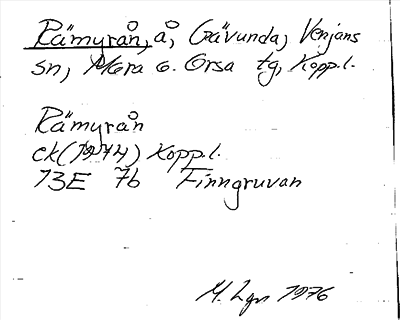 Rämyrån, å, Gävunda, Venjans
sn, Mora o. Orsa tg, Kopp.l.
Rämyrån
ek (1974) Kopp.l.
13E 7b Finngruvan
M. Lgn 1976